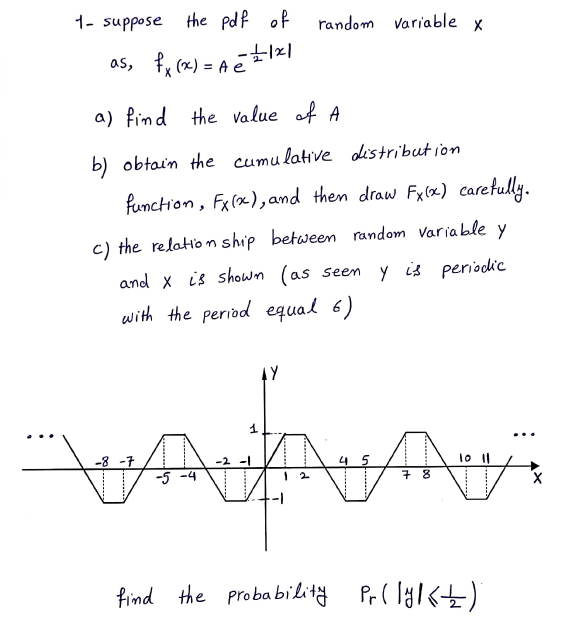 1- suppose the pdf of random variable x
as, fx(x) = A e^-1/2|x|
a) find the value of A
b) obtain the cumulative distribution
function, Fx(x), and then draw Fx(x) carefully.
c) the relationship between random variable y
and x is shown (as seen y is periodic
with the period equal 6)
Y
... 1 ...
-8 -7 -2 -1 4 5 10 11
-5 -4 1 2 7 8 X
-1
find the probability Pr(|y|⩽1/2)